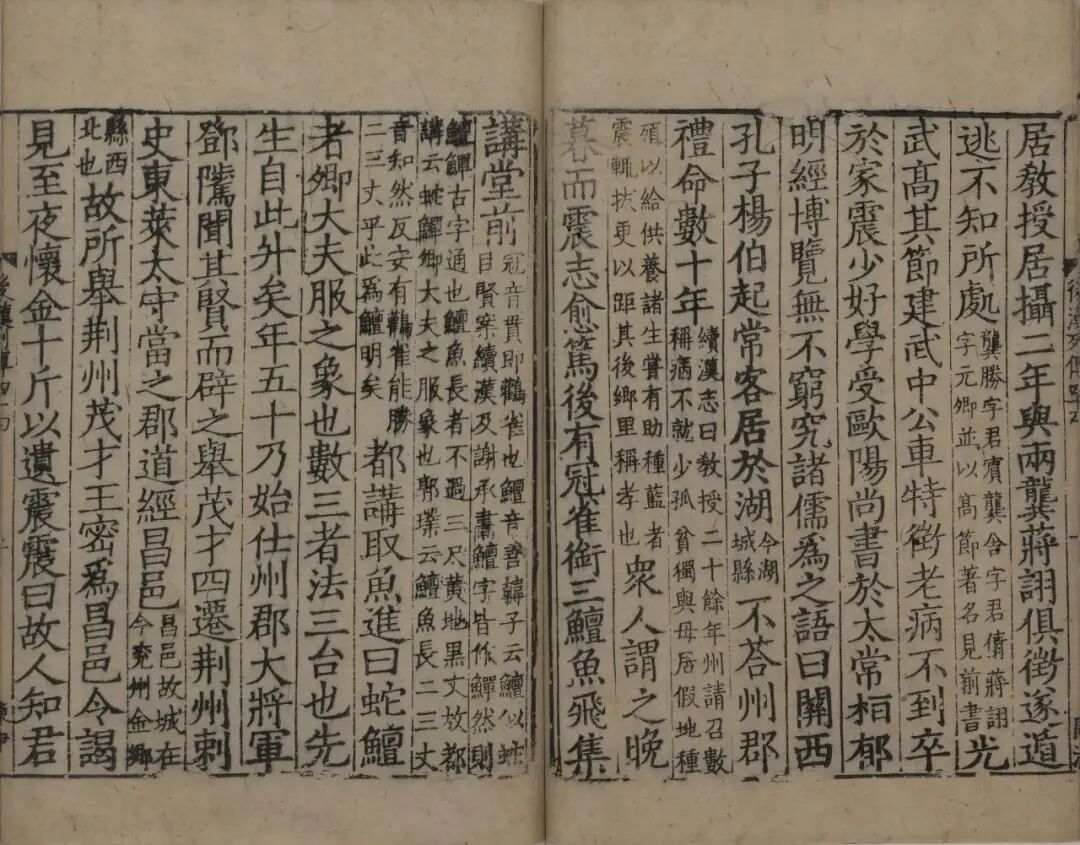 居教授居攝二年與兩龔蔣詡俱徵遂遁
逃不知所處龔勝字君賓龔舍字君倩蔣詡字元卿並以高節著名見前書光
武高其節建武中公車特徵老病不到卒
於家震少好學受歐陽尚書於太常桓郁
明經博覽無不窮究諸儒爲之語曰關西
孔子楊伯起常客居於湖今湖城縣不荅州郡
禮命數十年續漢志曰教授二十餘年州請召數稱病不就少孤貧獨與母居假地種
殖以給供養諸生嘗有助種藍者震輒拔更以距其後鄉里稱孝也衆人謂之晚
暮而震志愈篤後有冠雀銜三鱣魚飛集
講堂前冠音貫即鸛雀也鱣音善韓子云鱣似虵臣賢案續漢及謝承書鱣字皆作鱓然則
鱣鱓古字通也鱣魚長者不過三尺黃地黑文故都講云虵鱓卿大夫之服象也郭璞云鱣魚長二三丈
音知然反安有鸛雀能勝二三丈乎此爲鱣明矣都講取魚進曰虵鱣
者卿大夫服之象也數三者法三台也先
生自此升矣年五十乃始仕州郡大將軍
鄧騭聞其賢而辟之舉茂才四遷荆州刺
史東萊太守當之郡道經昌邑昌邑故城在今兖州金鄉
縣西北也故所舉荆州茂才王密爲昌邑令謁
見至夜懷金十斤以遺震震曰故人知君